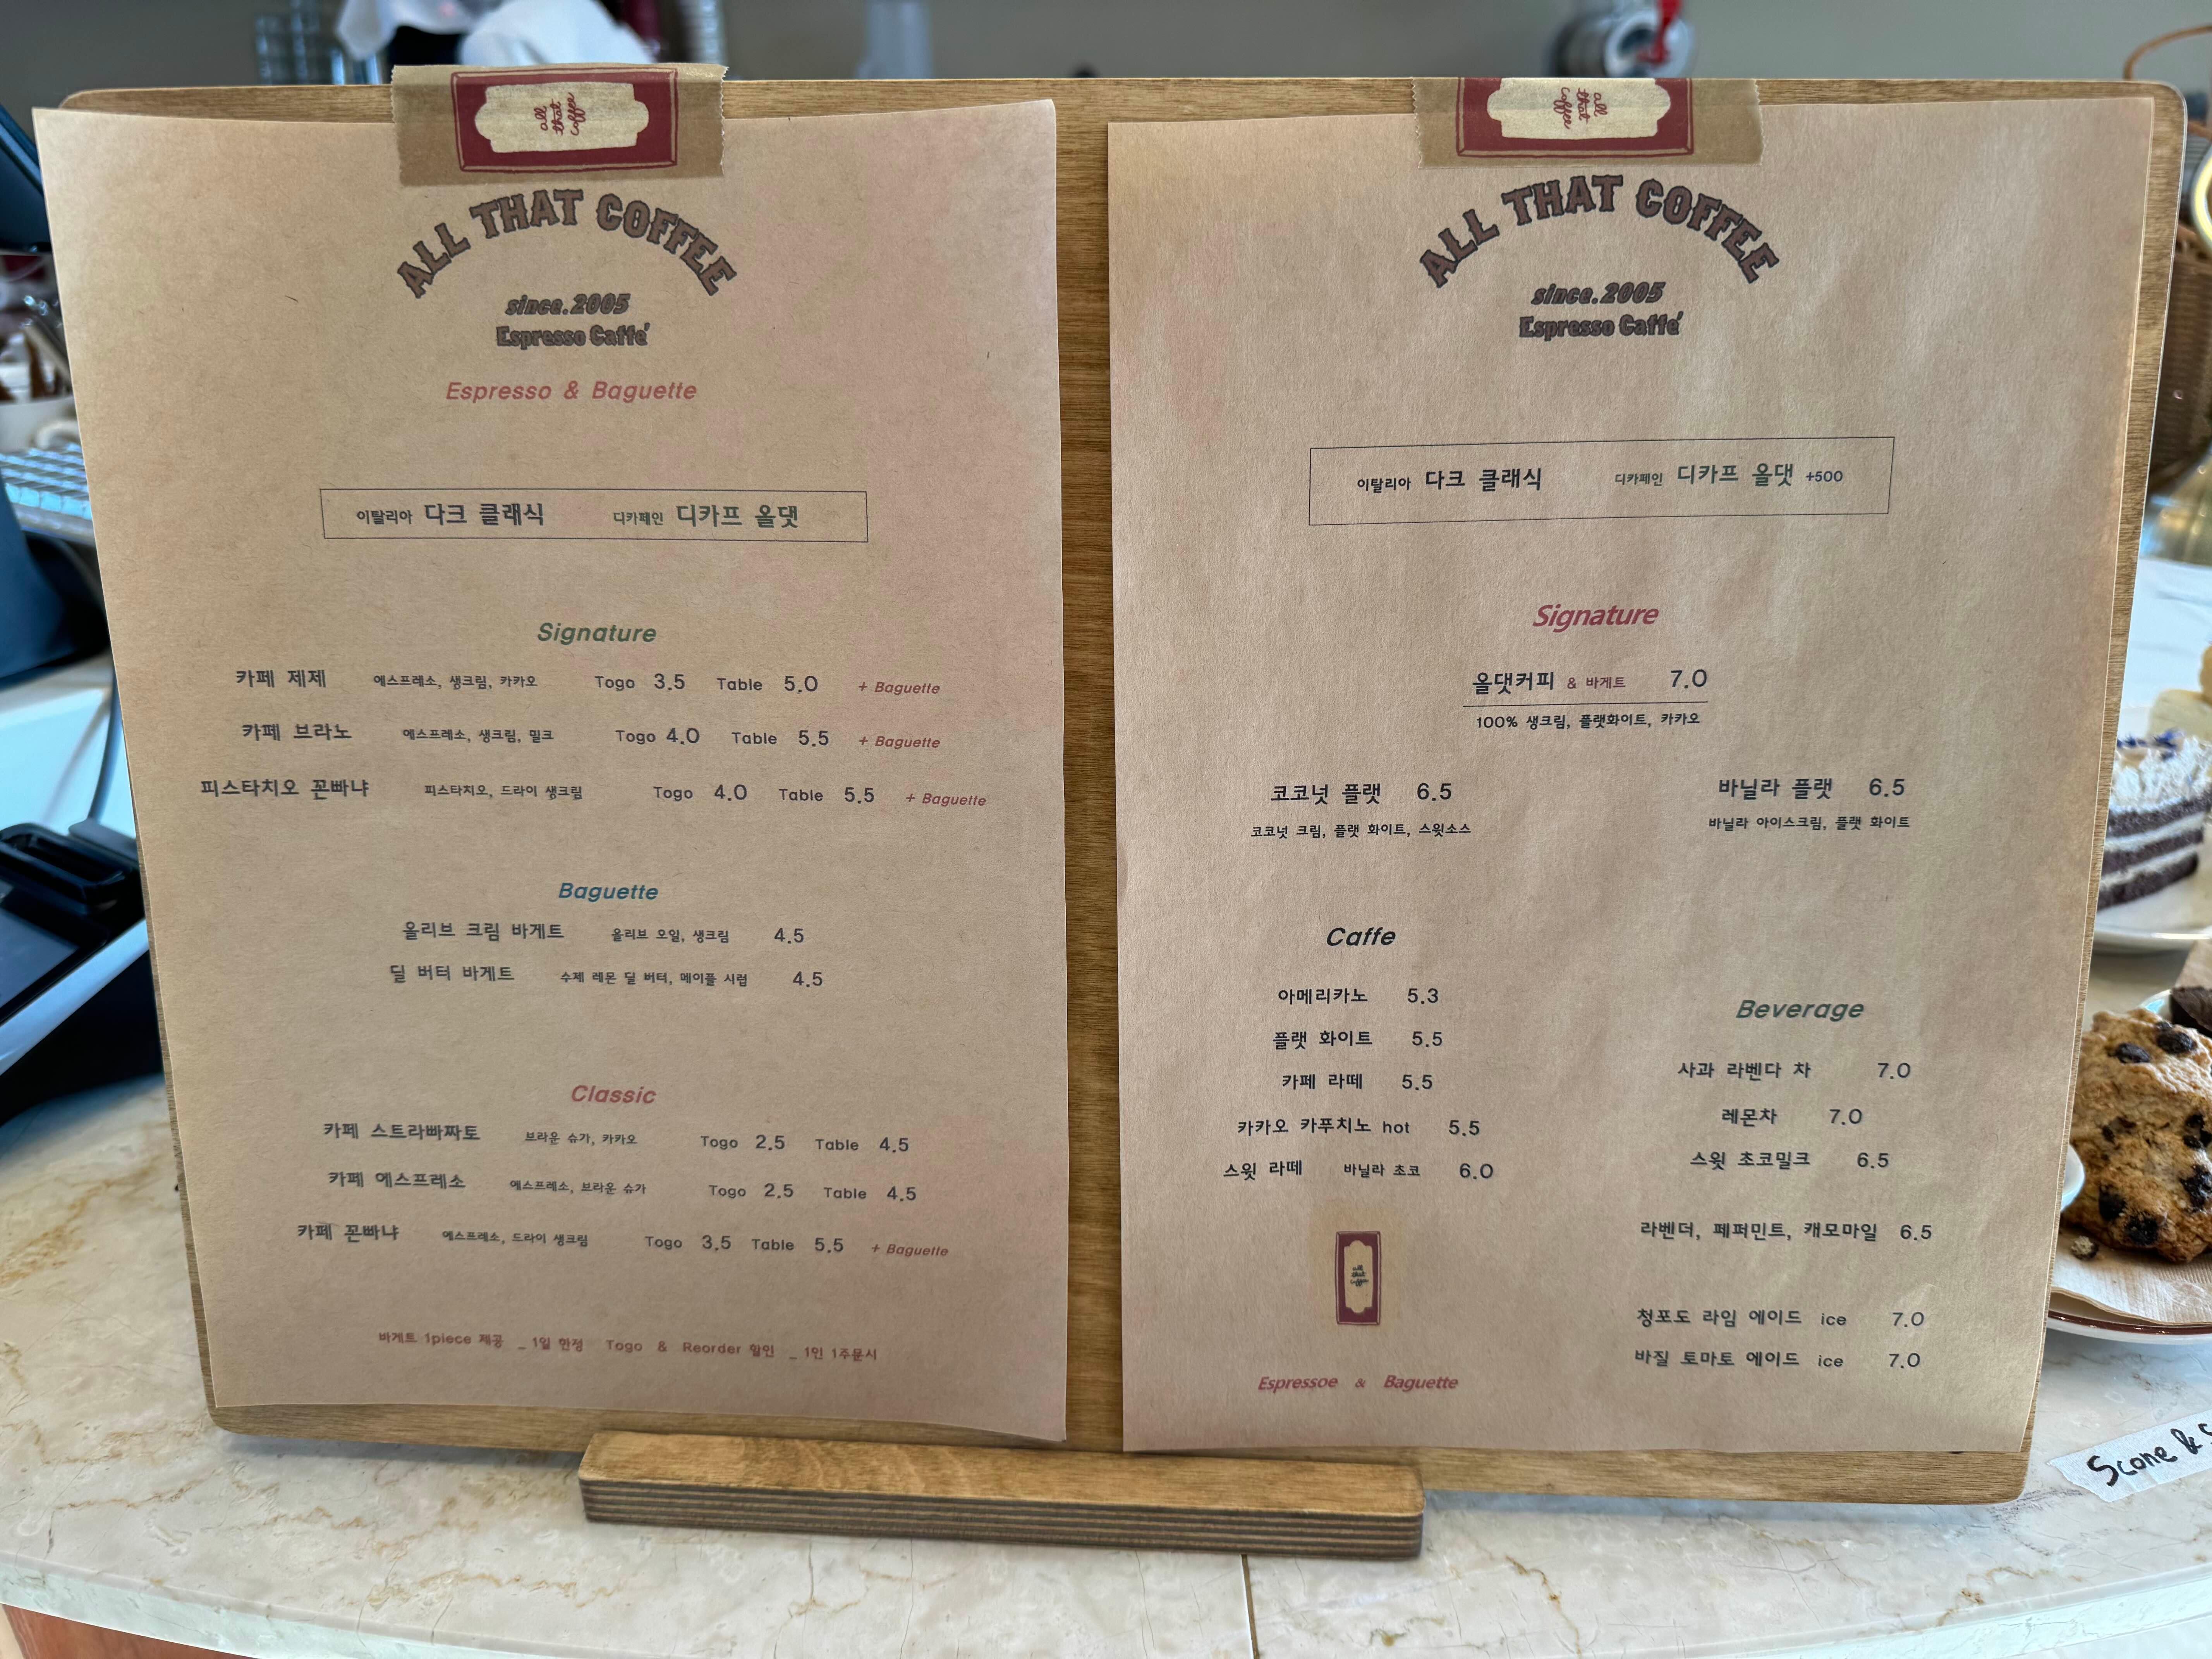 all that coffee
ALL THAT COFFEE
since.2005
Espresso Caffe'
Espresso & Baguette
이탈리아 다크 클래식 디카페인 디카프 올댓
Signature
카페 제제 에스프레소, 생크림, 카카오 Togo 3.5 Table 5.0 + Baguette
카페 브라노 에스프레소, 생크림, 밀크 Togo 4.0 Table 5.5 + Baguette
피스타치오 꼰빠냐 피스타치오, 드라이 생크림 Togo 4.0 Table 5.5 + Baguette
Baguette
올리브 크림 바게트 올리브 오일, 생크림 4.5
딜 버터 바게트 수제 레몬 딜 버터, 메이플 시럽 4.5
Classic
카페 스트라빠짜토 브라운 슈가, 카카오 Togo 2.5 Table 4.5
카페 에스프레소 에스프레소, 브라운 슈가 Togo 2.5 Table 4.5
카페 꼰빠냐 에스프레소, 드라이 생크림 Togo 3.5 Table 5.5 + Baguette
바게트 1piece 제공 _ 1일 한정 Togo & Reorder 할인 _ 1인 1주문시
all that coffee
ALL THAT COFFEE
since.2005
Espresso Caffe'
이탈리아 다크 클래식 디카페인 디카프 올댓 +500
Signature
올댓커피 & 바게트 7.0
100% 생크림, 플랫화이트, 카카오
코코넛 플랫 6.5
코코넛 크림, 플랫 화이트, 스윗소스
바닐라 플랫 6.5
바닐라 아이스크림, 플랫 화이트
Caffe
아메리카노 5.3
플랫 화이트 5.5
카페 라떼 5.5
카카오 카푸치노 hot 5.5
스윗 라떼 바닐라 초코 6.0
Espressoe & Baguette
Beverage
사과 라벤다 차 7.0
레몬차 7.0
스윗 초코밀크 6.5
라벤더, 페퍼민트, 캐모마일 6.5
청포도 라임 에이드 ice 7.0
바질 토마토 에이드 ice 7.0
Scone &